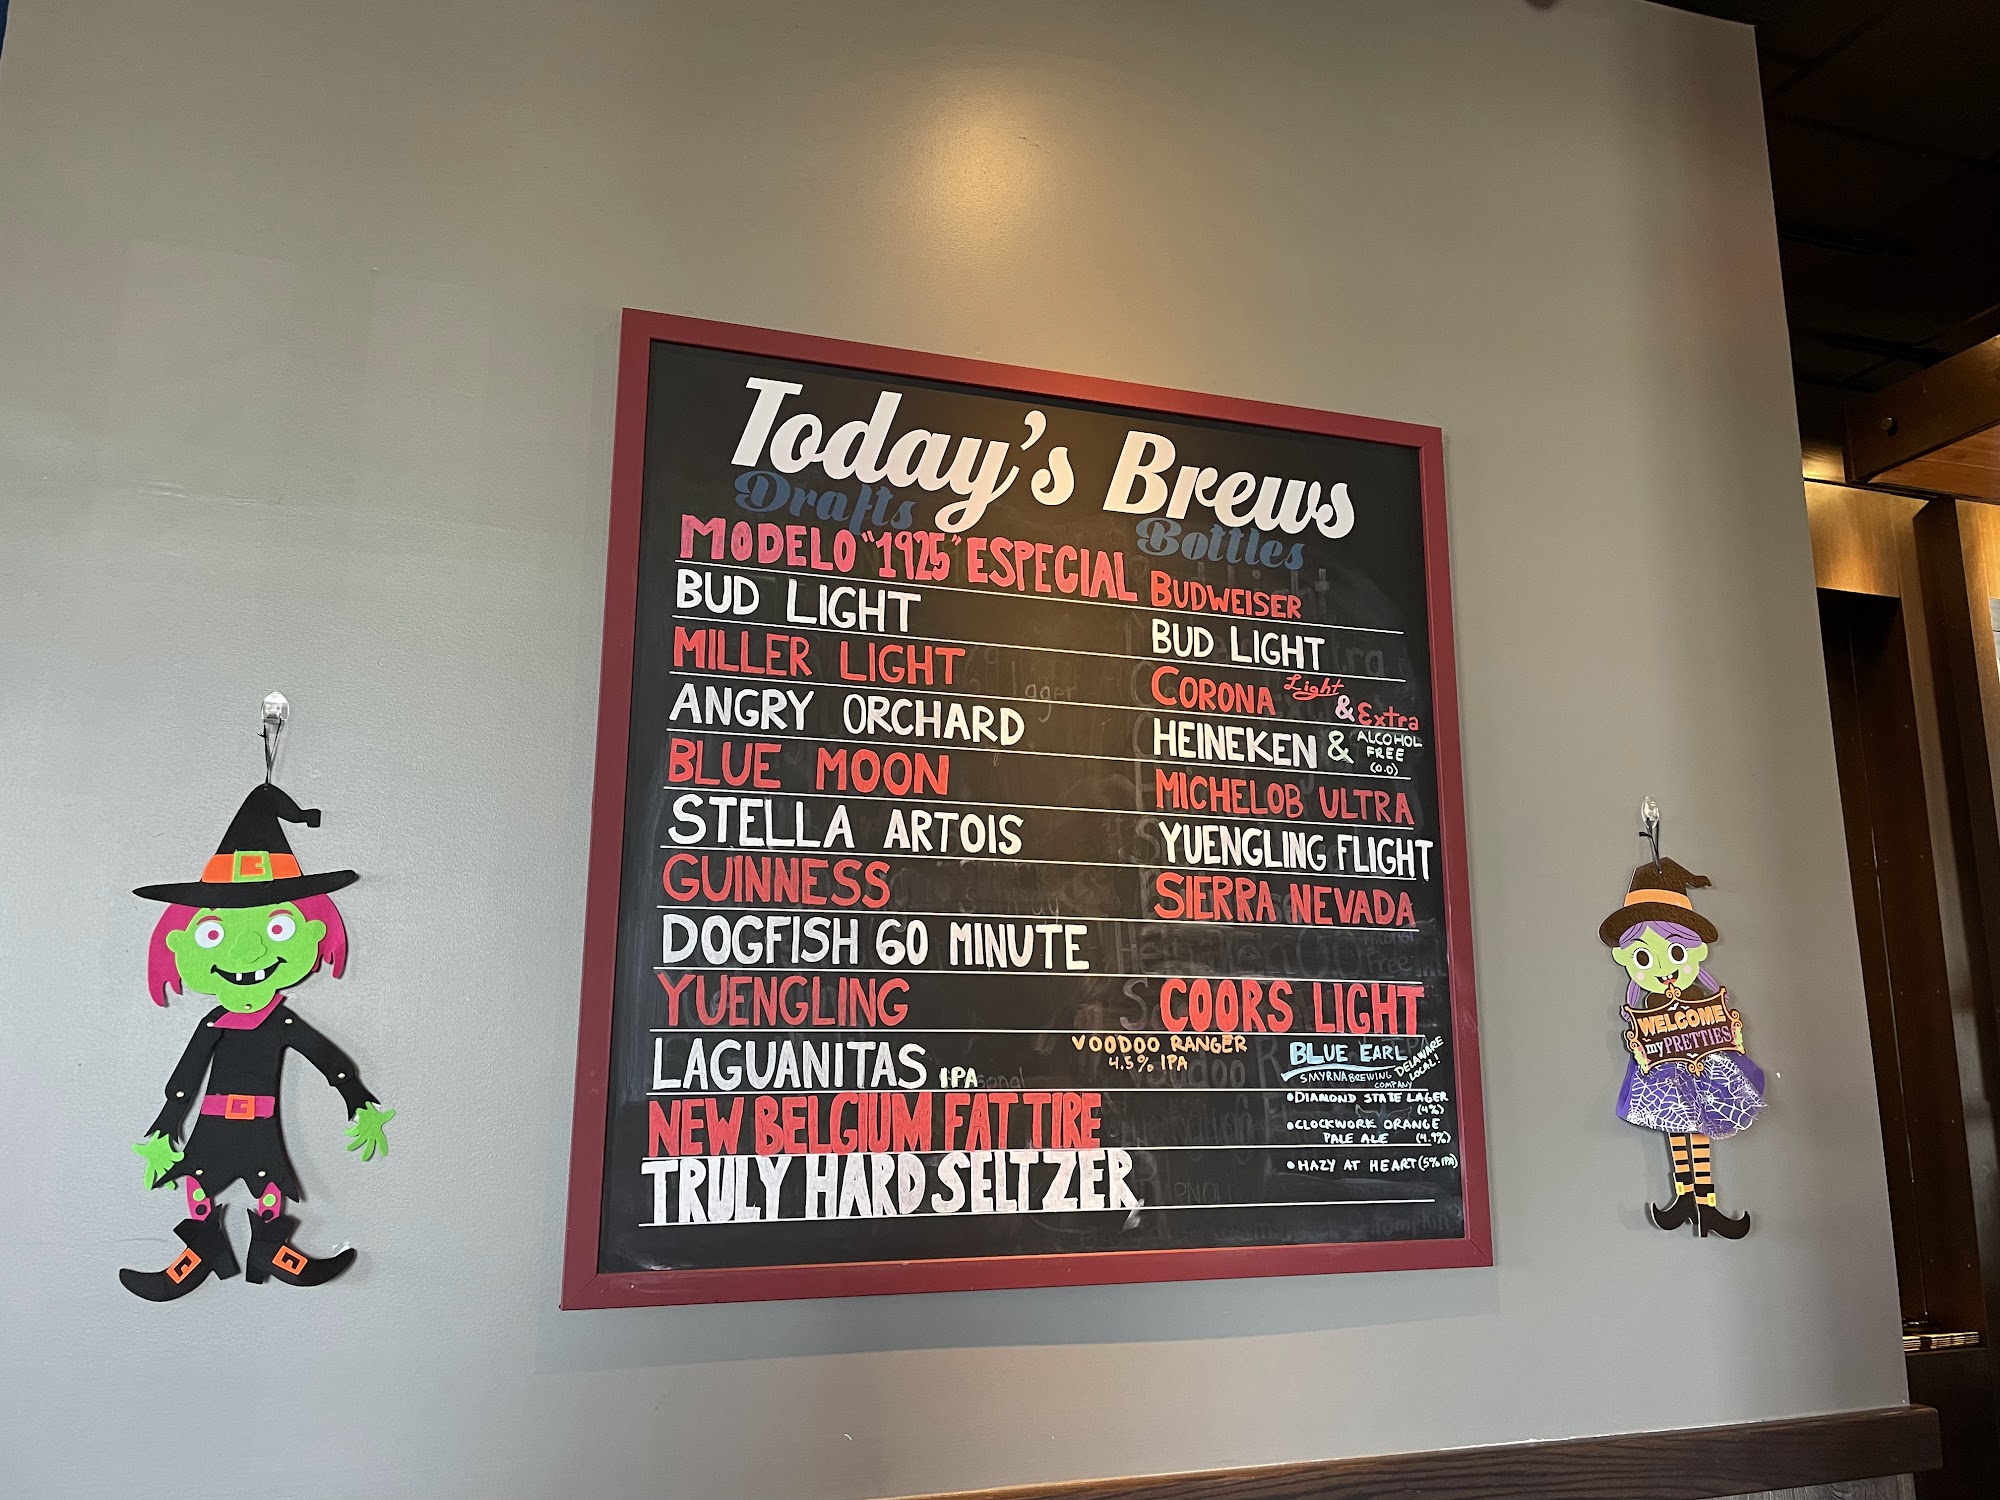 Today's Brews
Drafts
Bottles
MODELO "1925" ESPECIAL
BUD LIGHT
MILLER LIGHT
ANGRY ORCHARD
BLUE MOON
STELLA ARTOIS
GUINNESS
DOGFISH 60 MINUTE
YUENGLING
LAGUANITAS IPA
NEW BELGIUM FAT TIRE
TRULY HARD SELTZER
BUDWEISER
BUD LIGHT
CORONA Light & Extra
HEINEKEN & ALCOHOL
FREE
(0.0)
MICHELOB ULTRA
YUENGLING FLIGHT
SIERRA NEVADA
COORS LIGHT
VOODOO RANGER
4.5% IPA
BLUE EARL
SMYRNA BREWING
COMPANY
DELAWARE
LOCAL!
•DIAMOND STATE LAGER
(4%)
•CLOCKWORK ORANGE
PALE ALE (4.9%)
•HAZY AT HEART (5% IPA)
WELCOME
my PRETTIES